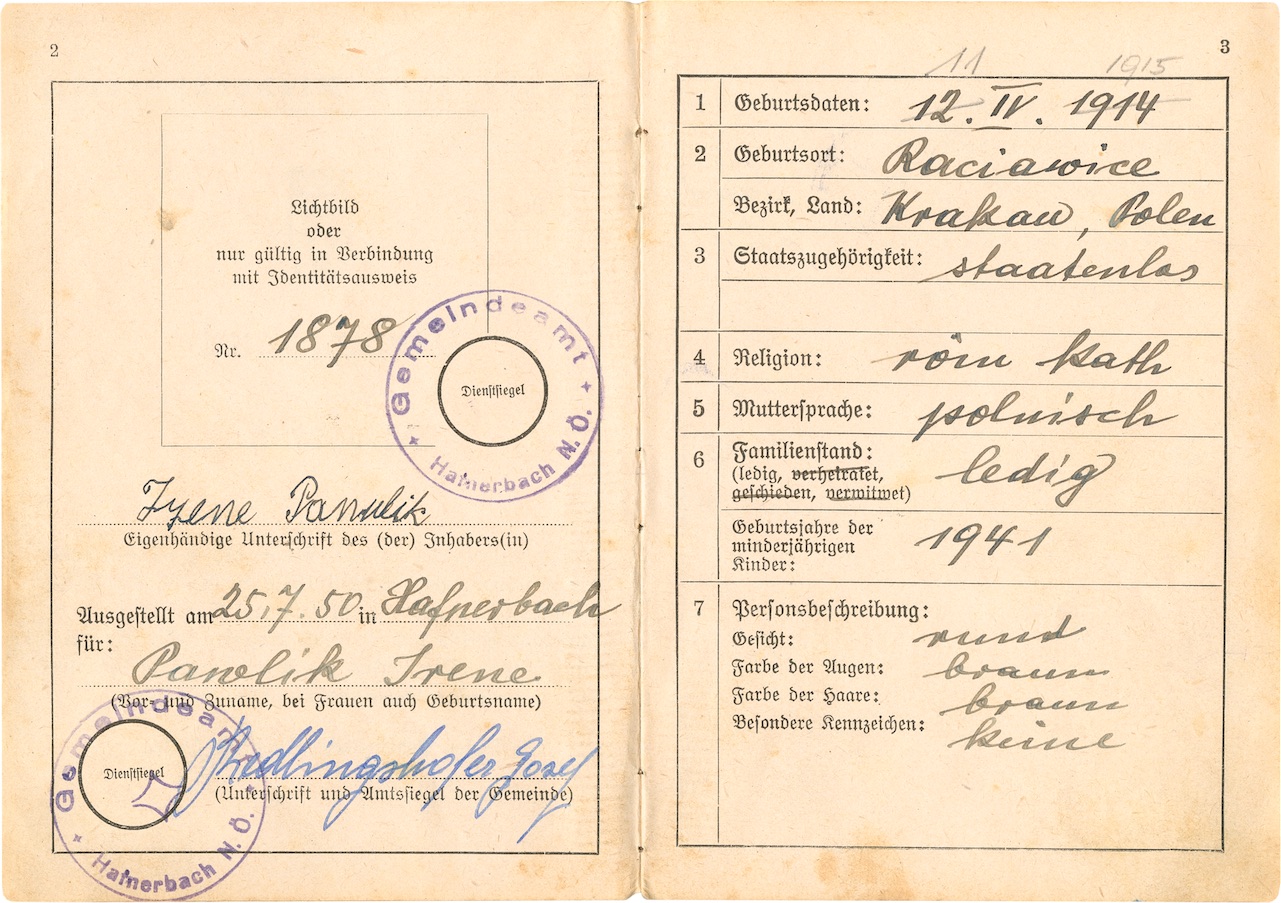 2
Lichtbild
oder
nur gültig in Verbindung
mit Identitätsausweis
Nr. 1878
Gemeindeamt
Dienstsiegel
Hafnerbach N.Ö.
Irene Pawlik
Eigenhändige Unterschrift des (der) Inhabers(in)
Ausgestellt am 25.7.50 in Hafnerbach
für:
Pawlik Irene
(Vor- und Zuname, bei Frauen auch Geburtsname)
Gemeindeamt
Dienstsiegel
Josef
(Unterschrift und Amtssiegel der Gemeinde)
Hafnerbach N.Ö.
3
11 1915
1 Geburtsdaten: 12. IV. 1914
2 Geburtsort: Raciawice
Bezirk, Land: Krakau, Polen
3 Staatszugehörigkeit: staatenlos
4 Religion: röm kath
5 Muttersprache: polnisch
6 Familienstand: ledig
(ledig, verheiratet,
geschieden, verwitwet)
Geburtsjahre der
minderjährigen 1941
Kinder:
7 Personsbeschreibung:
Gesicht: rund
Farbe der Augen: braun
Farbe der Haare: braun
Besondere Kennzeichen: keine